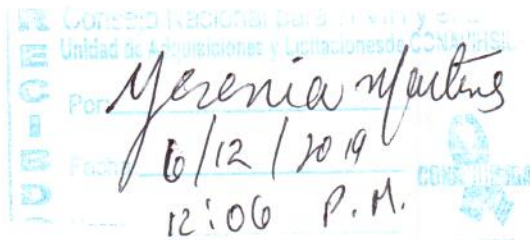 RECIBIDO
Consejo Nacional para el VIH y SIDA
Unidad de Adquisiciones y Licitaciones de CONAVIHSIDA
Por: Yesenia Martíns
Fecha: 6/12/2019
12:06 P.M.